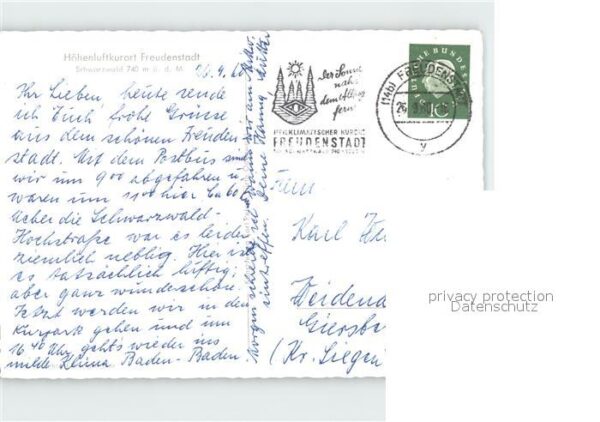 Höhenluftkurort Freudenstadt
Schwarzwald 740 m ü. d. M.
Ihr Lieben, heute sende
ich Euch frohe Grüsse
aus dem schönen Freuden-
stadt. Mit dem Postbus sind
wir um 9 00 abgefahren u.
waren um 11 00 hier
Ueber die Schwarzwald-
Hochstraße war es leider
ziemlich neblig. Hier ist
es tatsächlich luftig,
aber ganz wunderschön.
Jetzt werden wir in den
Kurpark gehen und um
16 40 Uhr geht's wieder ins
milde Klima Baden-Baden.
Der Sonne
nah-
dem Alltag
fern!
HEILKLIMATISCHER KURORT
FREUDENSTADT
(14b) FREUDENSTADT
DEUTSCHE BUNDESPOST
10
Karl
Weidenau
Giersb
(Kr. Siegen)
privacy protection
Datenschutz